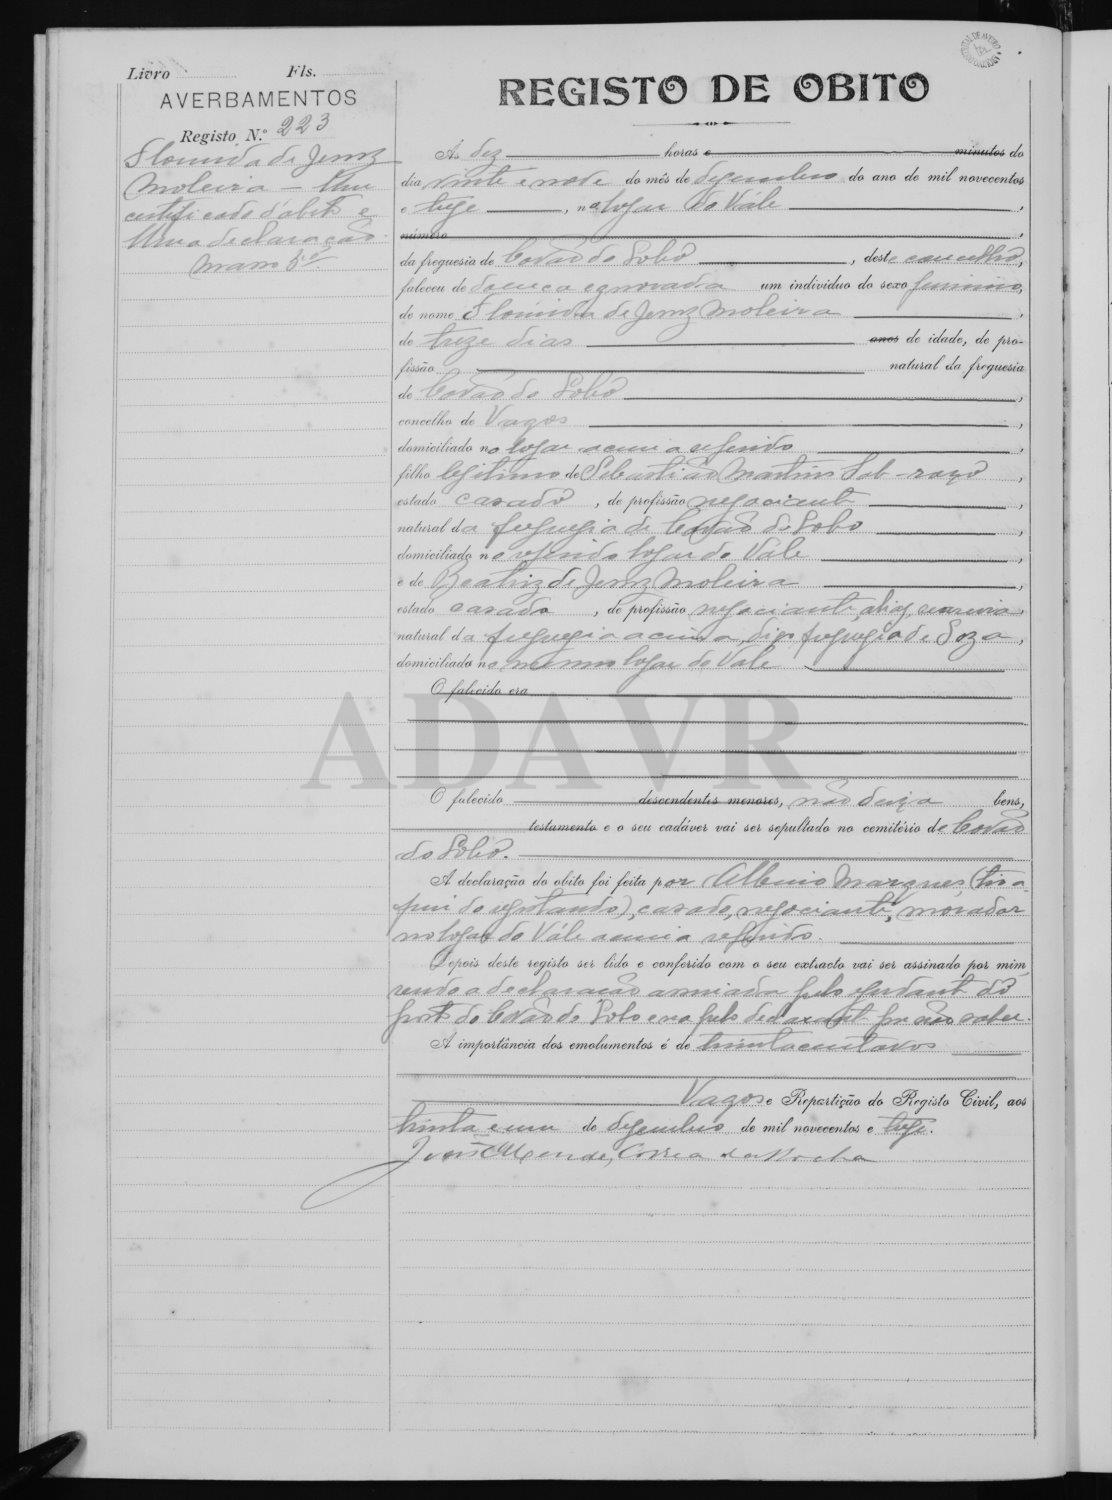 Livro Fls.
AVERBAMENTOS
Registo N.º 223
Florinda de Jesus
Moleira — Um
certificado d'obito e
Uma declaração
maço 5.º
REGISTO DE OBITO
Ás dez horas e minutos do
dia vinte e nove do mês de dezembro do ano de mil novecentos
e treze, no logar do Vále,
número
da freguesia de Covão do Lobo, deste concelho,
faleceu de doença egnorada um individuo do sexo feminino,
de nome Florinda de Jesus Moleira,
de treze dias anos de idade, de pro-
fissão natural da freguesia
de Covão do Lobo,
concelho de Vagos,
domiciliado no logar acima referido,
filho legitimo de Sebastião Martins,
estado casado, de profissão negociante,
natural da freguezia de Covão do Lobo,
domiciliado no referido logar do Vále,
e de Beatriz de Jesus Moleira,
estado casada, de profissão negociante, aliaz,
natural da freguezia acima, digo freguezia de Soza,
domiciliado no mesmo logar do Vale
O falecido era
ADAVR
O falecido descendentes menores, não deixa bens,
testamento e o seu cadáver vai ser sepultado no cemitério de Covão
do Lobo.
A declaração do obito foi feita por Albino Marques,
casado, negociante, morador
no logar do Vále acima referido.
Depois deste registo ser lido e conferido com o seu extracto vai ser assinado por mim
sendo a declaração assinada pelo ajudante do
posto do Covão do Lobo e não pelo declarante por não saber.
A importância dos emolumentos é de trinta centavos
Vagos e Repartição do Registo Civil, aos
trinta e um de dezembro de mil novecentos e treze.
Mendes Correia da Rocha